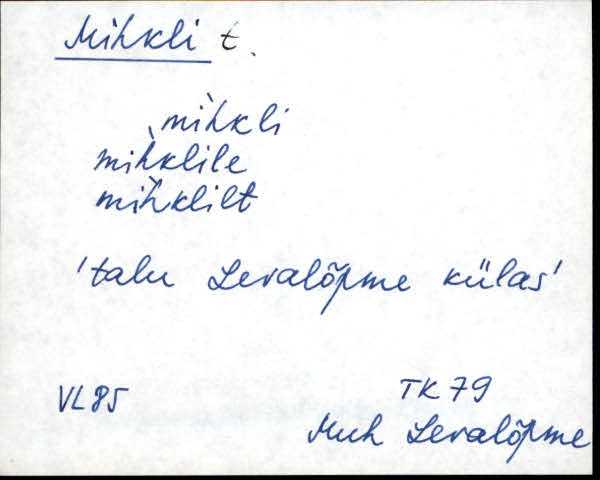 Mihkli t.
mìhkli
mìhklile
mìhklilt
'talu Levalõpme külas'
VL 85
TK 79
Muh Levalõpme